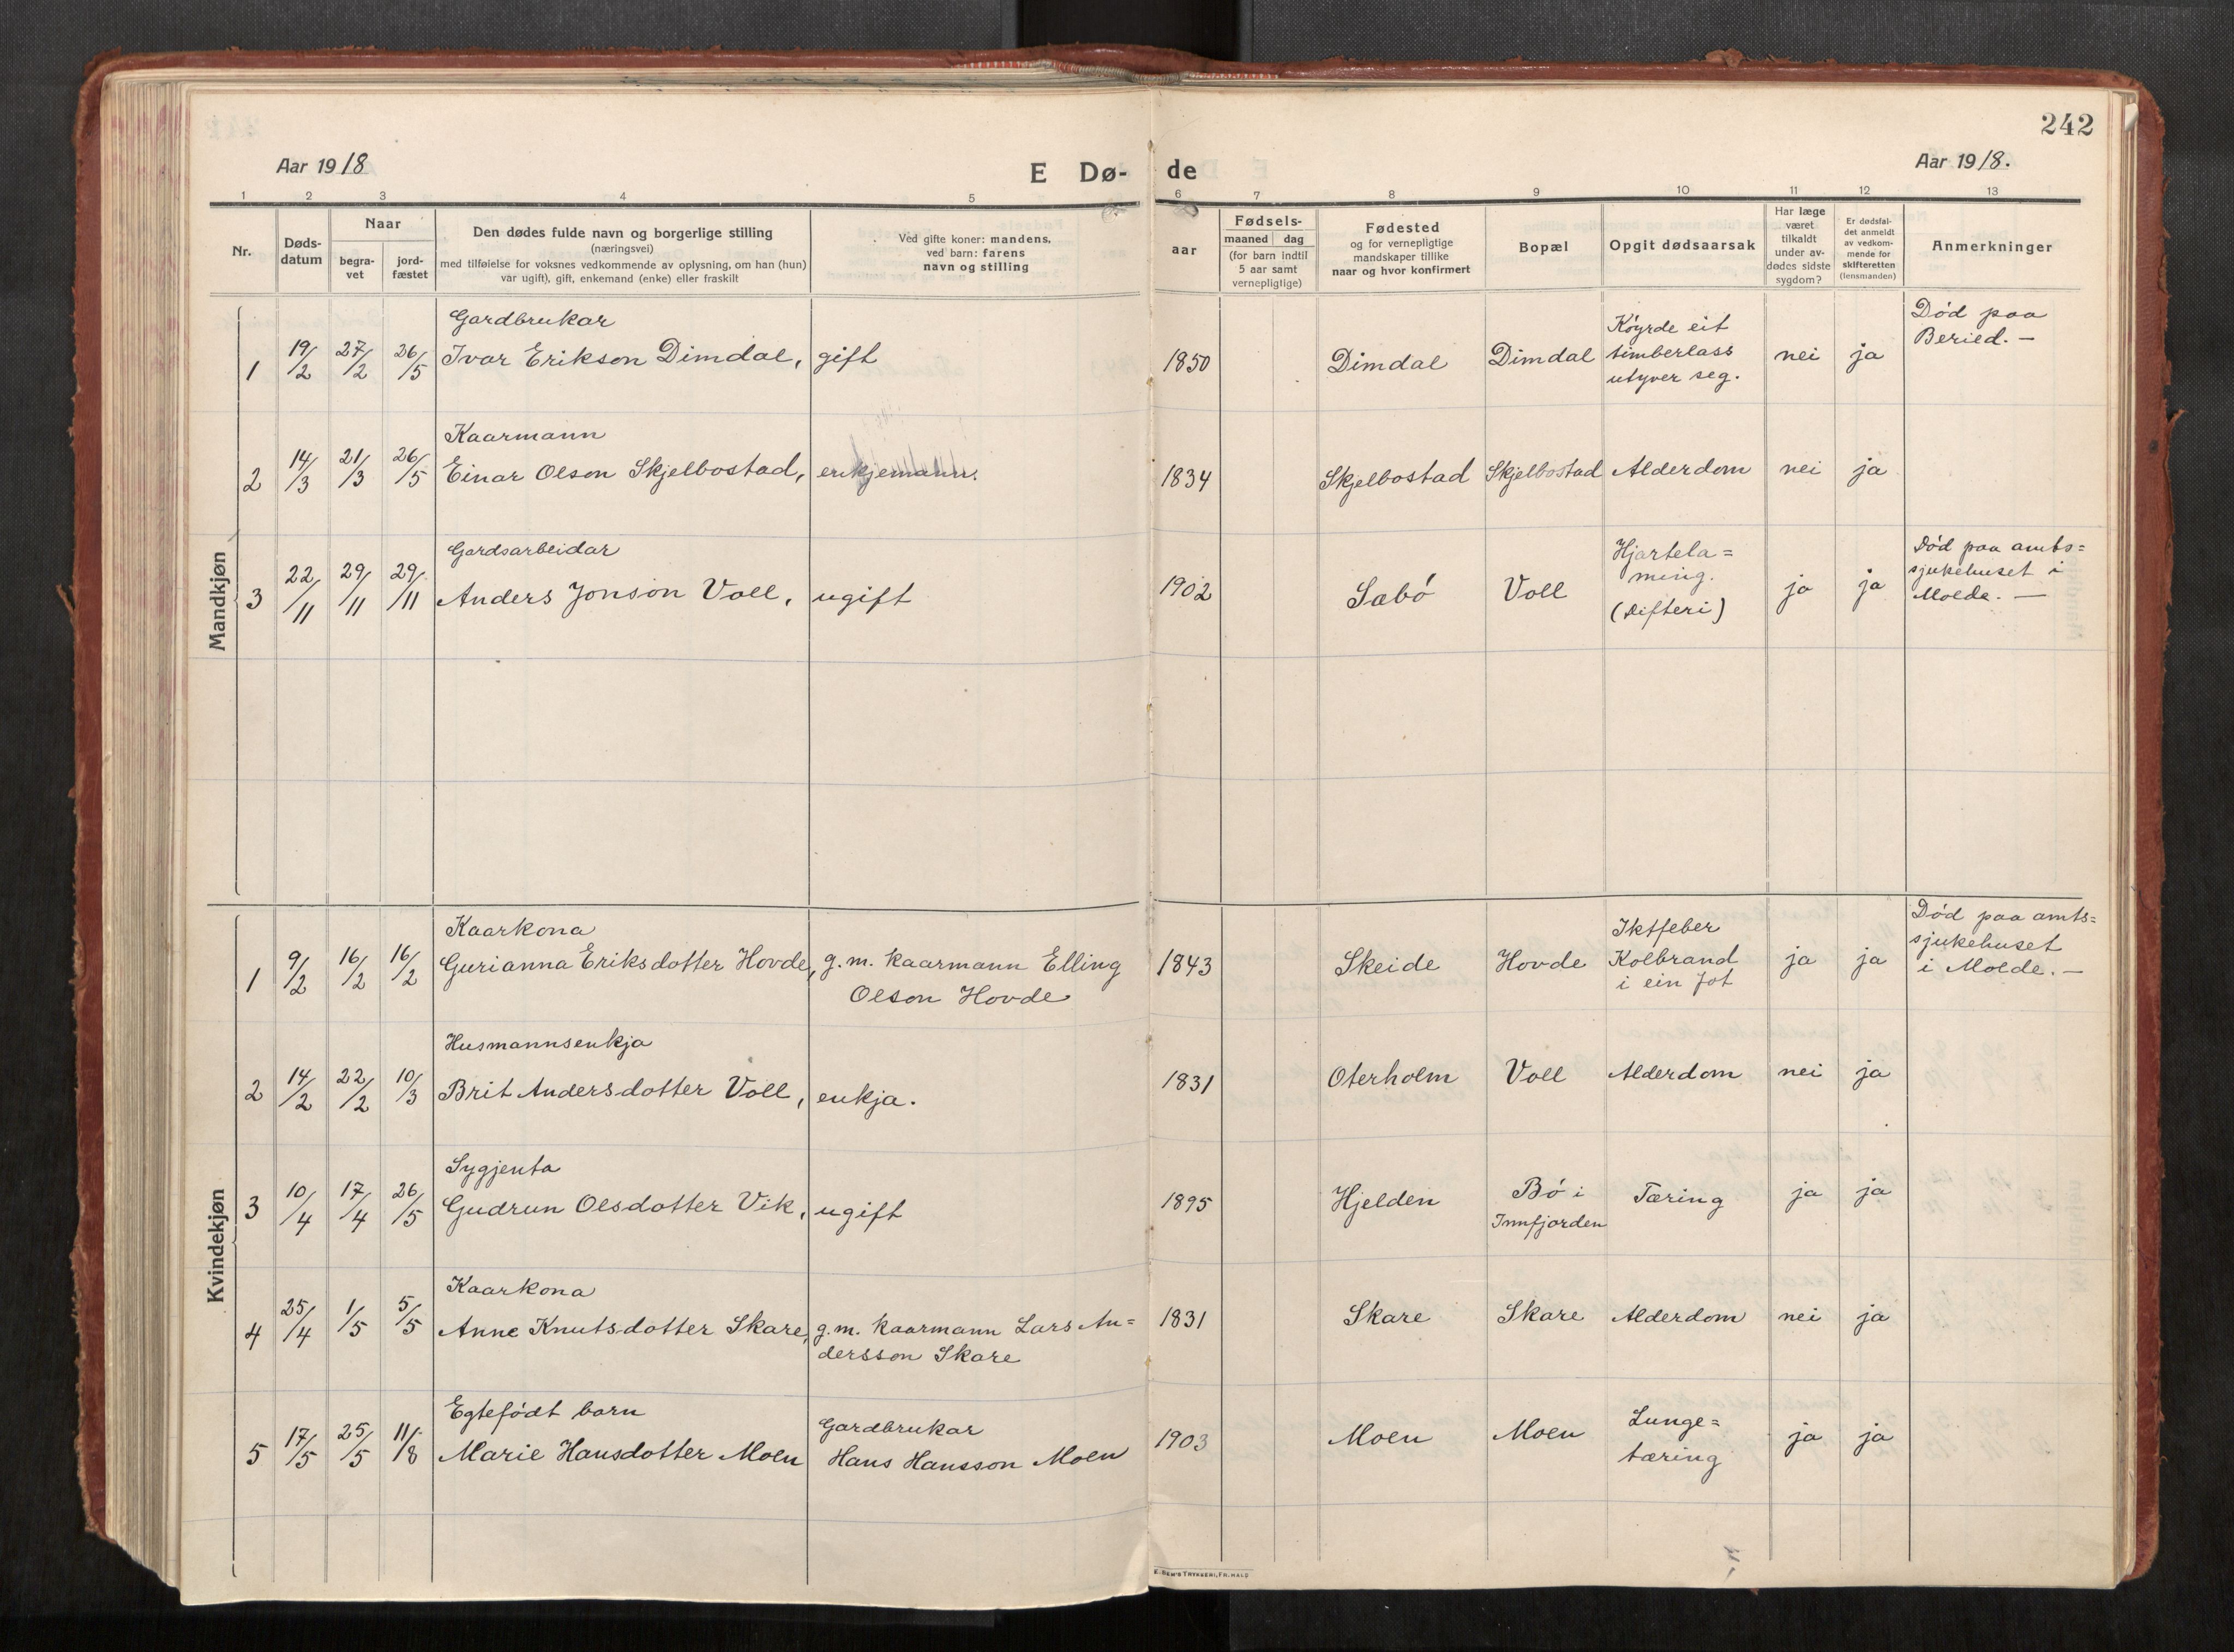 242
Aar 1918
E Dø-
de
Aar 1918.
1 2 3 4 5 6 7 8 9 10 11 12 13
Nr.
Døds-
datum
Naar
begra-
vet
jord-
fæstet
Den dødes fulde navn og borgerlige stilling
(næringsvei)
med tilføielse for voksnes vedkommende av oplysning, om han (hun)
var ugift), gift, enkemand (enke) eller fraskilt
Ved gifte koner: mandens,
ved barn: farens
navn og stilling
aar
Fødsels-
maaned dag
(for barn indtil
5 aar samt
vernepligtige)
Fødested
og for vernepligtige
mandskaper tillike
naar og hvor konfirmert
Bopæl
Opgit dødsaarsak
Har læge
været
tilkaldt
under av-
dødes sidste
sygdom?
Er dødsfal-
det anmeldt
av vedkom-
mende for
skifteretten
(lensmanden)
Anmerkninger
Mandkjøn
Gardbrukar
1 19/2 27/2 26/5 Ivar Erikson Dimdal, gift 1850 Dimdal Dimdal
Köyrde eit
timberlass
utyver seg.
nei ja
Död paa
Beried. —
Kaarmann
2 14/3 21/3 26/5 Einar Olson Skjelbostad, enkjemann. 1834 Skjelbostad Skjelbostad Alderdom nei ja
Gardsarbeidar
3 22/11 29/11 29/11 Anders Jonson Voll, ugift 1902 Sabö Voll
Hjartela=
ming.
(Difteri)
ja ja
Död paa amts=
sjukehuset i
Molde. —
Kvindekjøn
Kaarkona
1 9/2 16/2 16/2 Gurianna Eriksdotter Hovde, g.m. kaarmann Elling
Olson Hovde
1843 Skeide Hovde
Iktfeber
Kolbrand
i ein fot
ja ja
Död paa amts=
sjukehuset
i Molde. —
Husmannsenkja
2 14/2 22/2 10/3 Brit Andersdotter Voll, enkja. 1831 Oterholm Voll Alderdom nei ja
Sygjenta
3 10/4 17/4 26/5 Gudrun Olsdotter Vik, ugift 1895 Hjelden
Bö i
Innfjorden
Tæring ja ja
Kaarkona
4 25/4 1/5 5/5 Anne Knutsdotter Skare, g.m. kaarmann Lars An=
dersson Skare
1831 Skare Skare Alderdom nei ja
Egtefödt barn
5 17/5 25/5 11/8 Marie Hansdotter Moen
Gardbrukar
Hans Hansson Moen
1903 Moen Moen
Lunge=
tæring
ja ja